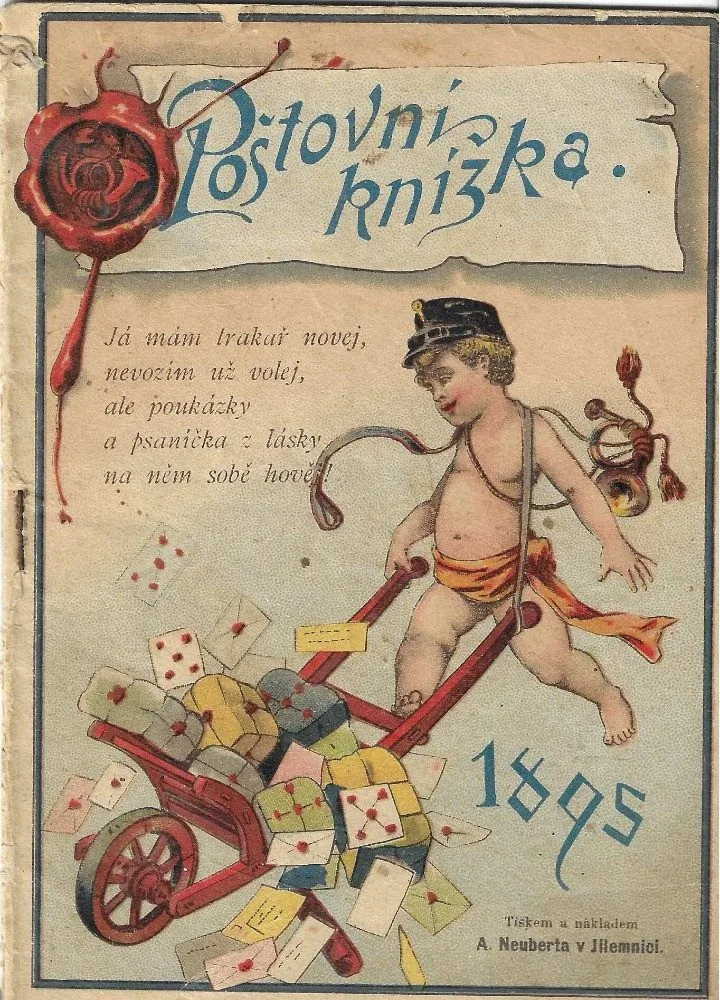 Poštovní
knížka.
Já mám trakař novej,
nevozím už volej,
ale poukázky
a psaníčka z lásky
na něm sobě hověj!
1895
Tiskem a nákladem
A. Neuberta v Jilemnici.